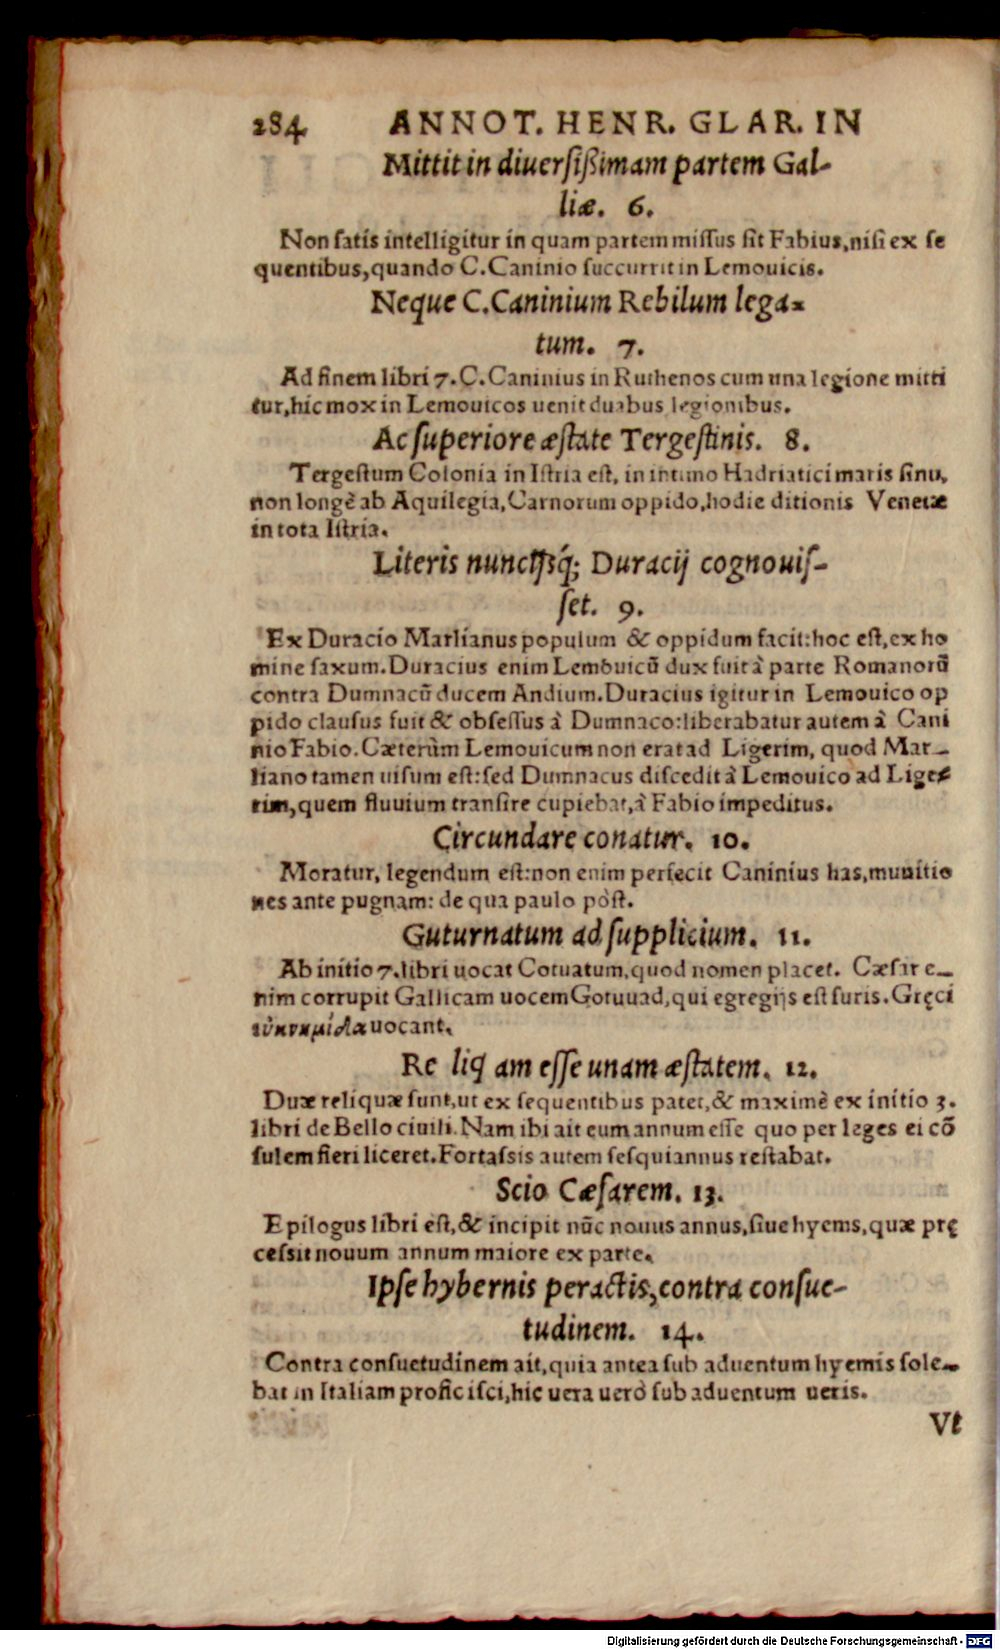 284 ANNOT. HENR. GLAR. IN
Mittit in diuerſißimam partem Gal-
liæ. 6.
Non ſatis intelligitur in quam partem miſſus ſit Fabius, niſi ex ſe
quentibus, quando C. Caninio ſuccurrit in Lemouicis.
Neque C. Caninium Rebilum lega-
tum. 7.
Ad finem libri 7. C. Caninius in Ruthenos cum una legione mitti
tur, hic mox in Lemouicos uenit duabus legionibus.
Ac ſuperiore æſtate Tergeſtinis. 8.
Tergeſtum Colonia in Iſtria eſt, in intimo Hadriatici maris ſinu,
non longè ab Aquilegia, Carnorum oppido, hodie ditionis Venetæ
in tota Iſtria.
Literis nuncijsq́; Duracij cognouiſ-
ſet. 9.
Ex Duracio Marlianus populum & oppidum facit: hoc eſt, ex ho
mine ſaxum. Duracius enim Lemouicū dux fuit à parte Romanorū
contra Dumnacū ducem Andium. Duracius igitur in Lemouico op
pido clauſus fuit & obſeſſus à Dumnaco: liberabatur autem à Cani
nio Fabio. Cæterùm Lemouicum non erat ad Ligerim, quod Mar-
liano tamen uiſum eſt: ſed Dumnacus diſcedit à Lemouico ad Lige-
rim, quem fluuium tranſire cupiebat, à Fabio impeditus.
Circundare conatur. 10.
Moratur, legendum eſt: non enim perfecit Caninius has, munitio
nes ante pugnam: de qua paulo pòſt.
Guturnatum ad ſupplicium. 11.
Ab initio 7. libri uocat Cotuatum, quod nomen placet. Cæſar e-
nim corrupit Gallicam uocem Gotuuad, qui egregijs eſt ſuris. Gręci
ἐυκνημίδα uocant.
Re liq̄ am eſſe unam æſtatem. 12.
Duæ reliquæ ſunt, ut ex ſequentibus patet, & maximè ex initio 3.
libri de Bello ciuili. Nam ibi ait eum annum eſſe quo per leges ei cō
ſulem fieri liceret. Fortaſsis autem ſeſquiannus reſtabat.
Scio Cæſarem. 13.
Epilogus libri eſt, & incipit nūc nouus annus, ſiue hyems, quæ prę
ceſsit nouum annum maiore ex parte.
Ipſe hybernis peractis, contra conſue-
tudinem. 14.
Contra conſuetudinem ait, quia antea ſub aduentum hyemis ſole-
bat in Italiam proficiſci, hic uera uerò ſub aduentum ueris.
Vt
Digitalisierung gefördert durch die Deutsche Forschungsgemeinschaft - DFG